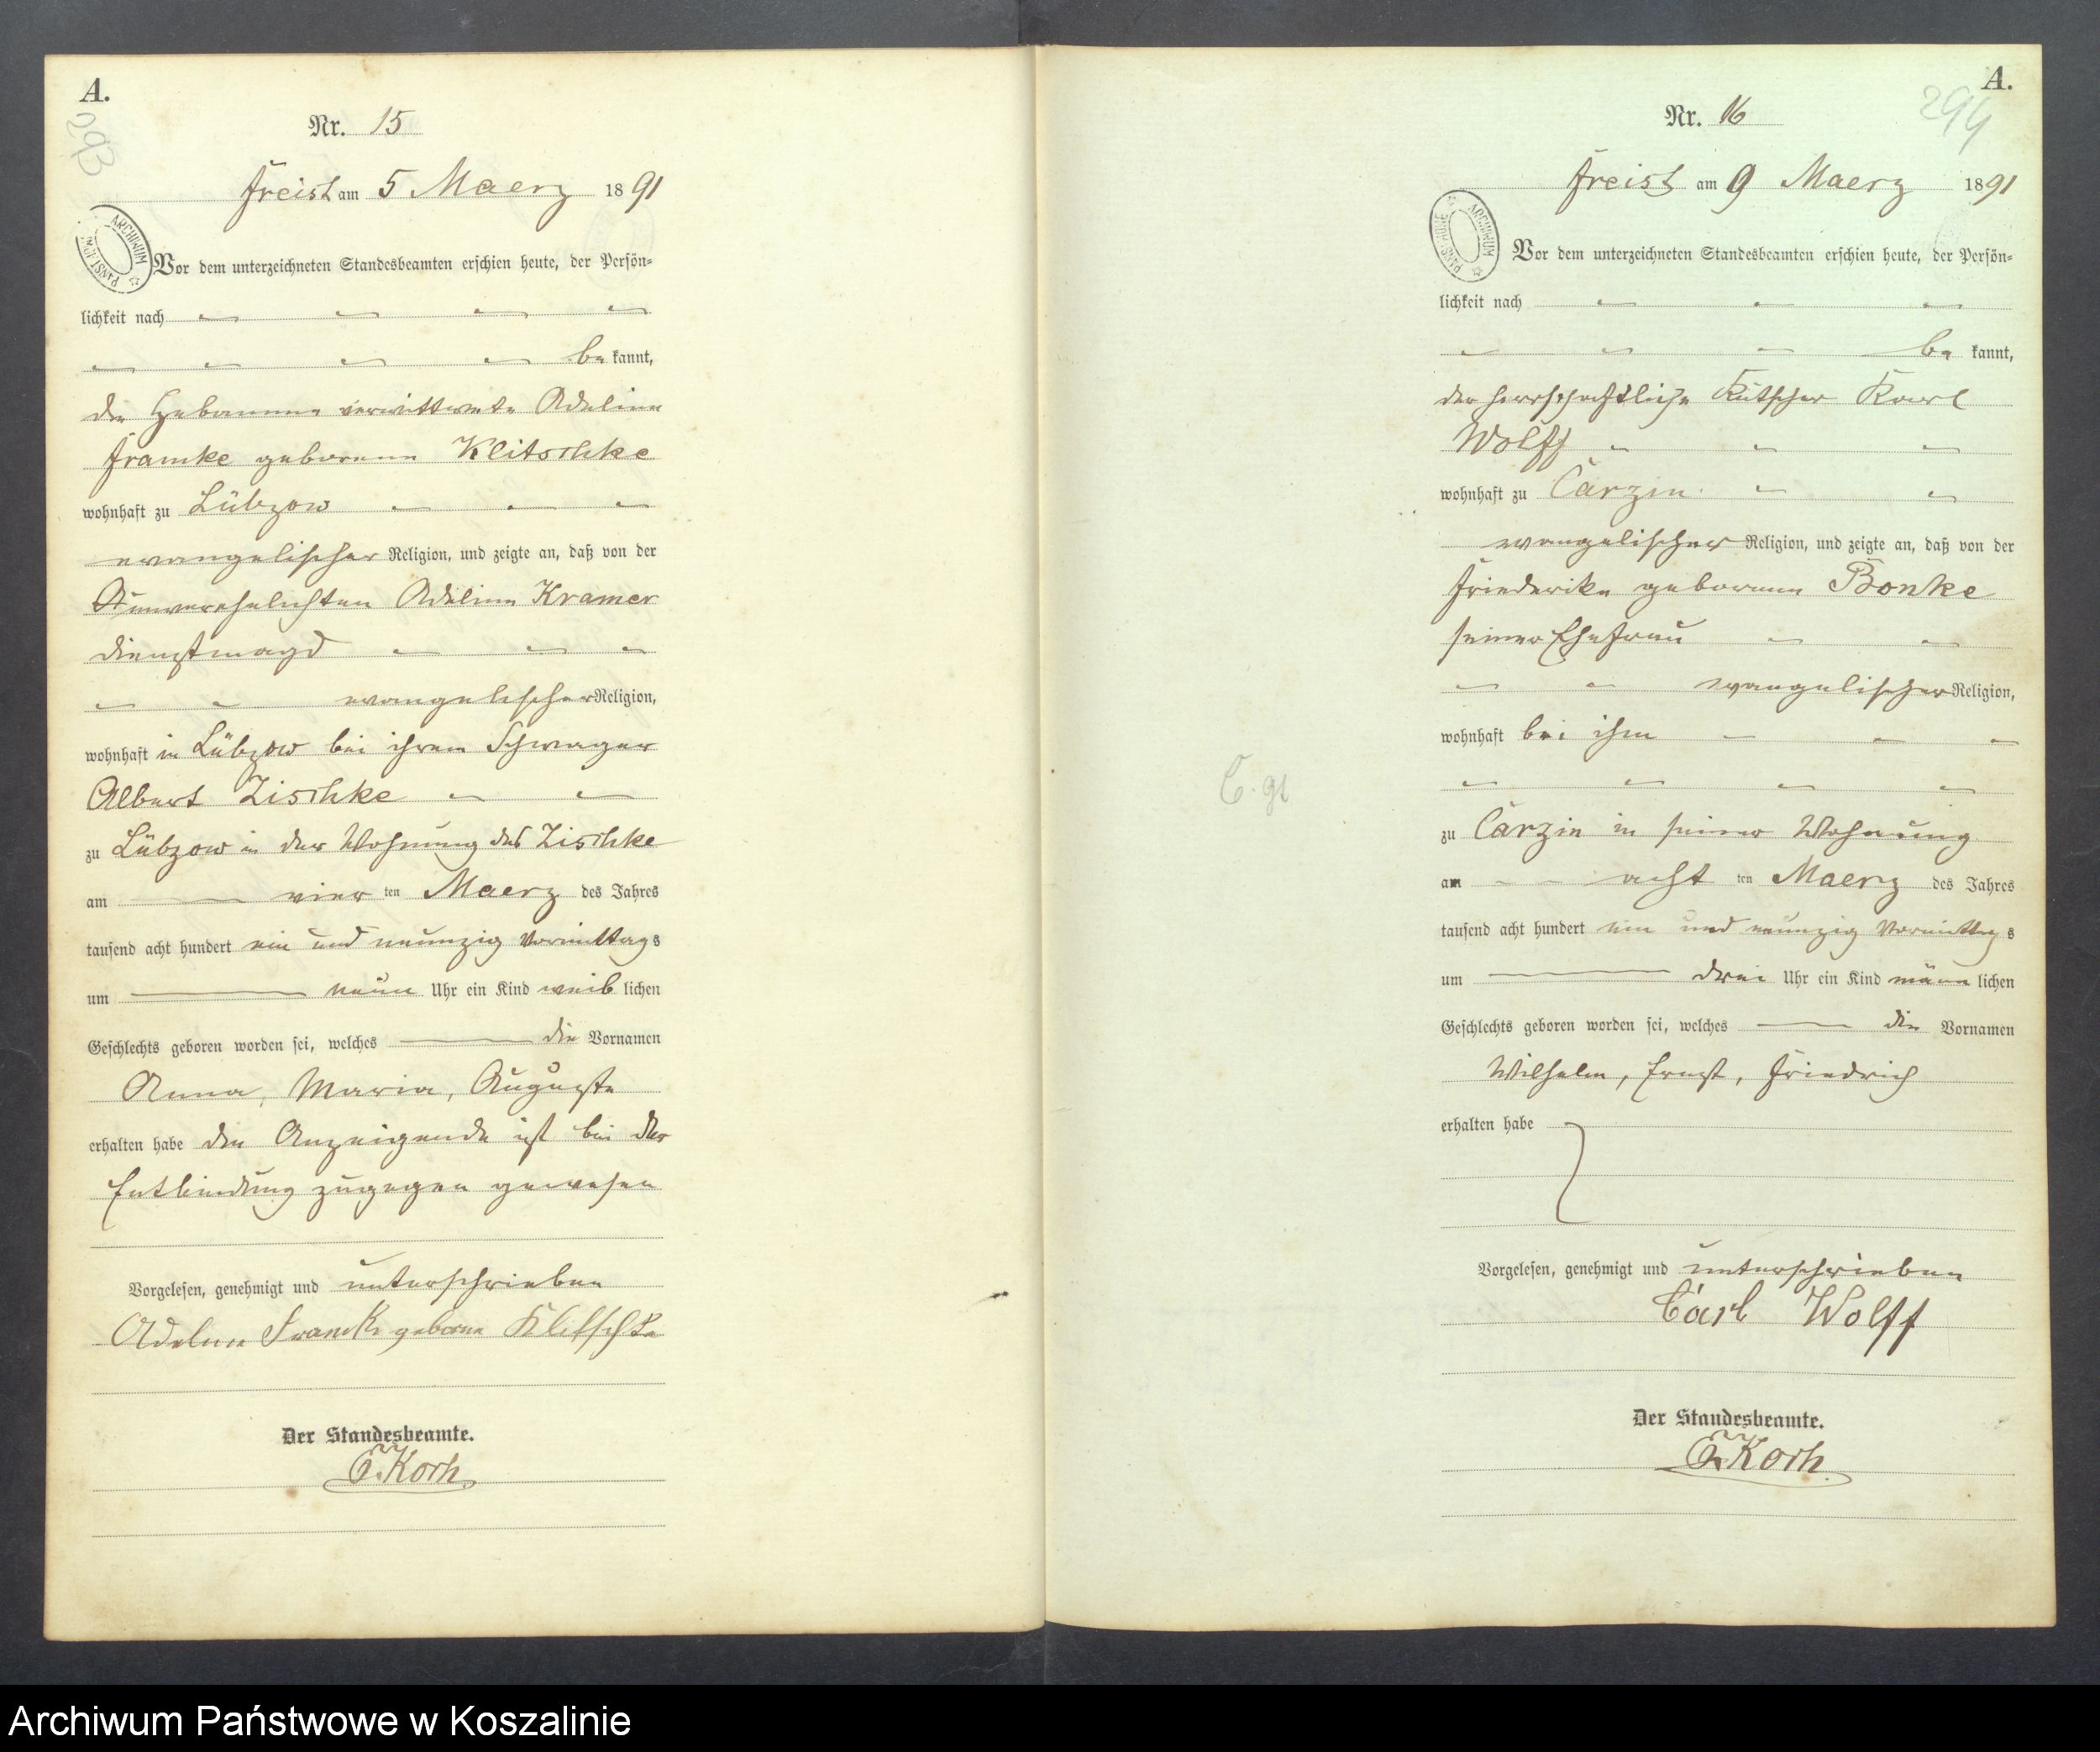 A.
293
Nr. 15
Freist am 5 Maerz 1891
ARCHIWUM PAŃSTWOWE
Vor dem unterzeichneten Standesbeamten erschien heute, der Persön-
lichkeit nach
be kannt,
die Hebamme verwittwete Adeline
Framke geborene Klitschke
wohnhaft zu Lübzow
evangelischer Religion, und zeigte an, daß von der
unverehelichten Adeline Kramer
Dienstmagd
evangelischer Religion,
wohnhaft in Lübzow bei ihrem Schwager
Albert Zischke
zu Lübzow in der Wohnung des Zischke
am vier ten Maerz des Jahres
tausend acht hundert ein und neunzig Vormittags
um neun Uhr ein Kind weib lichen
Geschlechts geboren worden sei, welches die Vornamen
Anna, Maria, Auguste
erhalten habe die Anzeigende ist bei der
Entbindung zugegen gewesen
Vorgelesen, genehmigt und unterschrieben
Adeline geborne Klitschke
Der Standesbeamte.
Koch
A.
294
Nr. 16
Freist am 9 Maerz 1891
ARCHIWUM PAŃSTWOWE
Vor dem unterzeichneten Standesbeamten erschien heute, der Persön-
lichkeit nach
be kannt,
der herrschaftliche Kutscher Karl
Wolff
wohnhaft zu Carzin
evangelischer Religion, und zeigte an, daß von der
Friederike geborenen Bonke
seiner Ehefrau
evangelischer Religion,
wohnhaft bei ihm
zu Carzin in seiner Wohnung
am acht ten Maerz des Jahres
tausend acht hundert ein und neunzig Vormittags
um drei Uhr ein Kind männ lichen
Geschlechts geboren worden sei, welches die Vornamen
Wilhelm, Ernst, Friedrich
erhalten habe
Vorgelesen, genehmigt und unterschrieben
Carl Wolff
Der Standesbeamte.
Koch
Archiwum Państwowe w Koszalinie